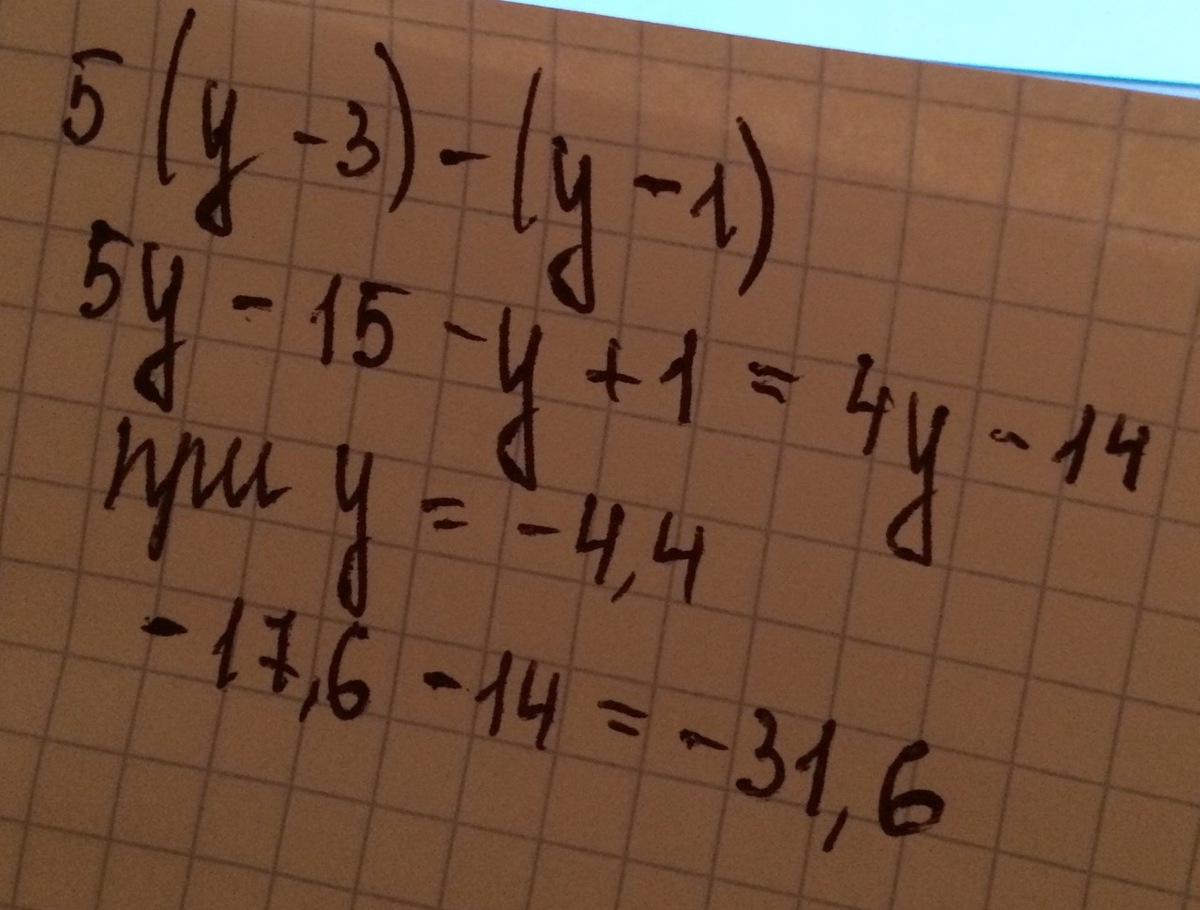 5(y - 3) - (y - 1)
5y - 15 - y + 1 = 4y - 14
при y = -4,4
-17,6 - 14 = -31,6